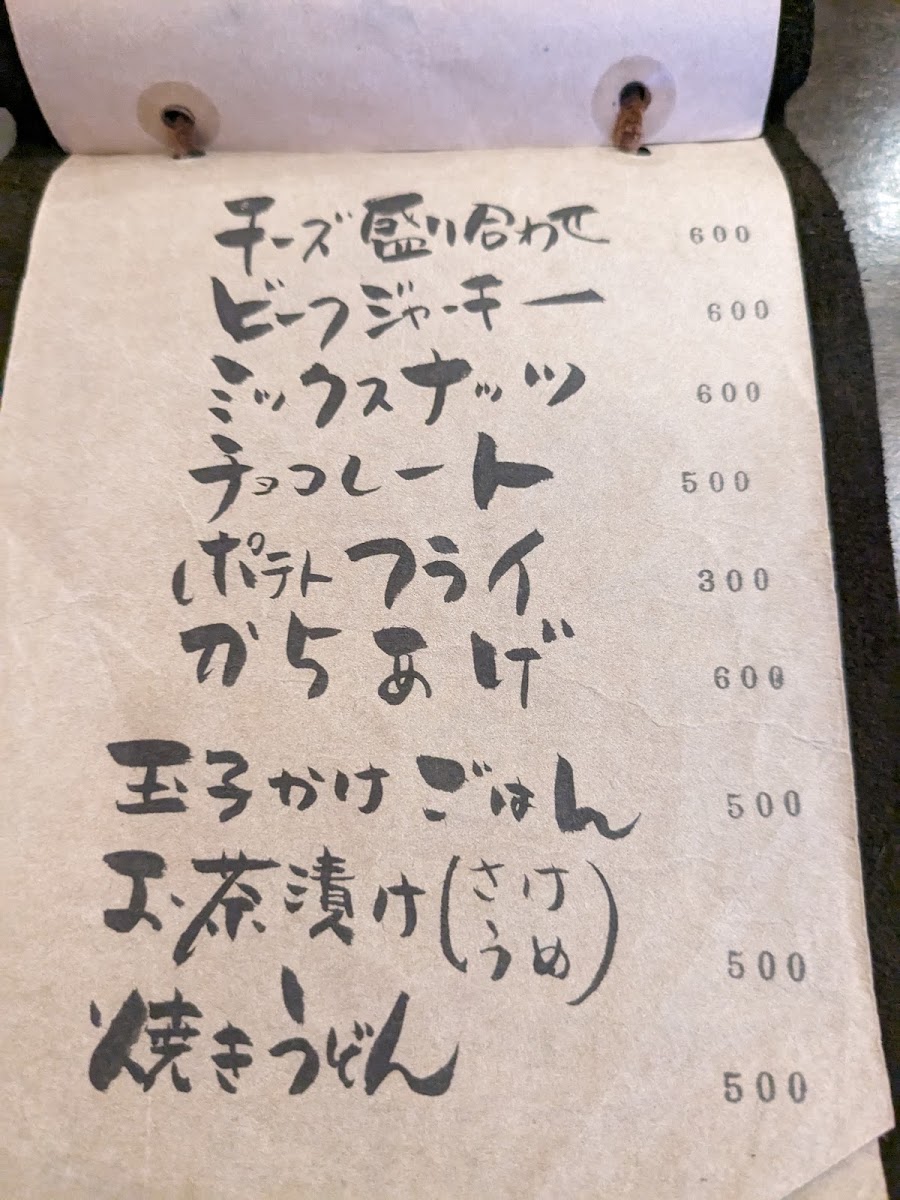 チーズ盛り合わせ 600
ビーフジャーキー 600
ミックスナッツ 600
チョコレート 500
ポテトフライ 300
からあげ 600
玉子かけごはん 500
お茶漬け(さけ うめ) 500
焼きうどん 500